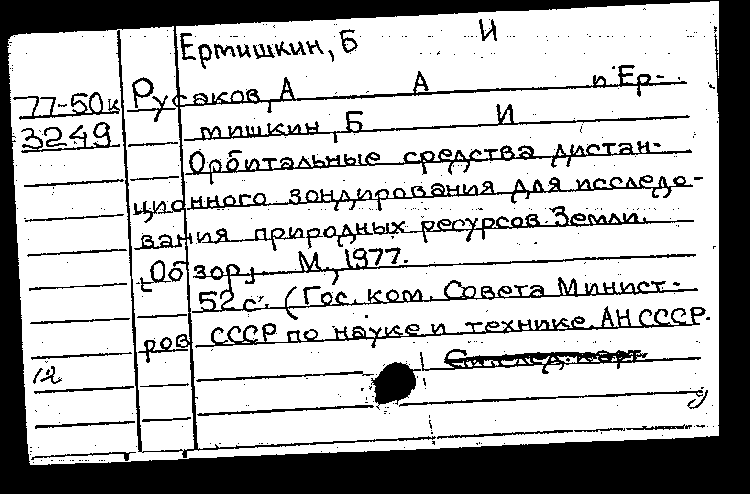 Ермишкин, Б И
77-50к Русаков, А А и Ер-
3249 мишкин, Б И
Орбитальные средства дистан-
ционного зондирования для исследо-
вания природных ресурсов Земли.
[Обзор] М., 1977.
52 с. (Гос. ком. Совета Минист-
ров СССР по науке и технике. АН СССР.